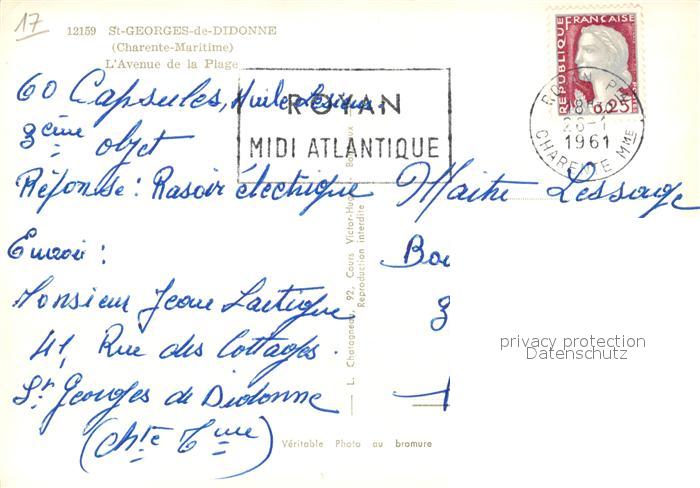 17
12159 St-GEORGES-de-DIDONNE
(Charente-Maritime)
L'Avenue de la Plage
60 Capsules, Huile Lesieur.
3ème objet
Réponse: Rasoir électrique
Envoi:
Monsieur Jean Lartigue
41, Rue des Cottages.
St Georges de Didonne
(Chte Mme)
ROYAN
MIDI ATLANTIQUE
REPUBLIQUE FRANÇAISE
0,25
ROYAN
1961
CHARENTE MME
L. Chatagneau, 92, Cours Victor-Hugo
Reproduction interdite
Maître Lessage
Bou
3
privacy protection
Datenschutz
Véritable Photo au bromure